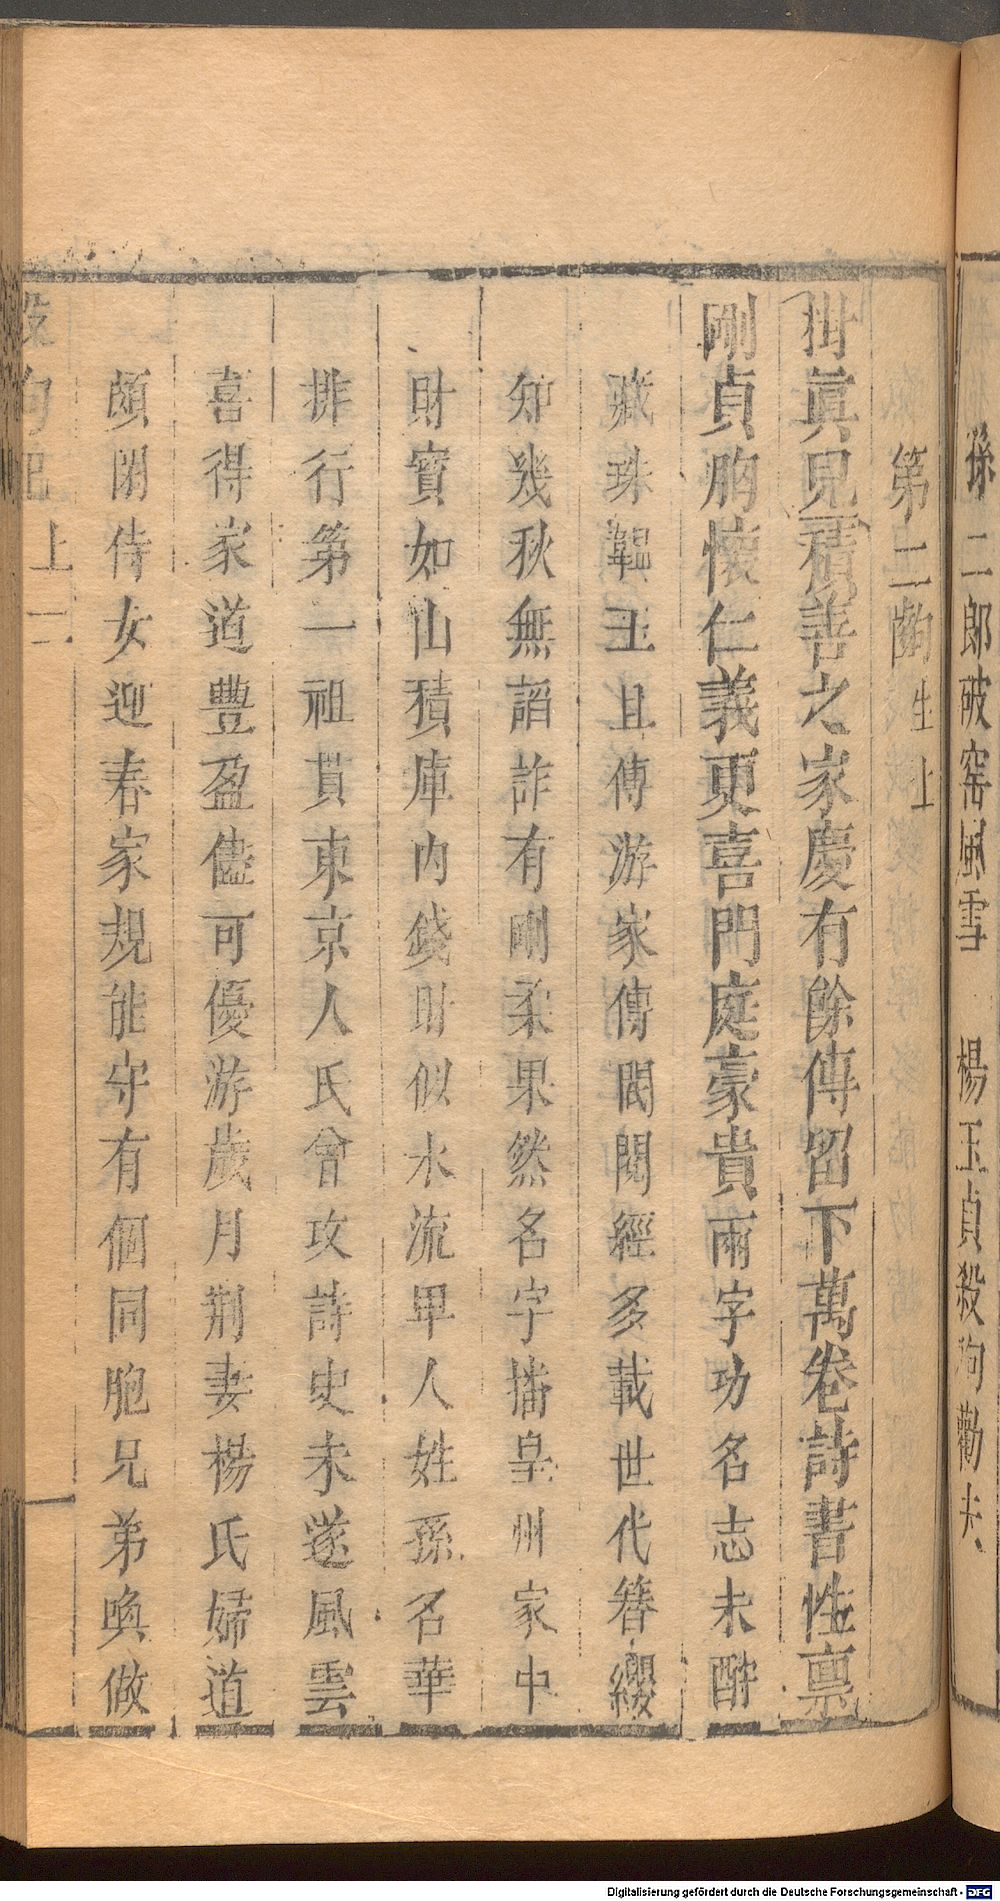 孫二郎破窑風雪　楊玉貞殺狗勸夫
第二齣 生上
掛眞兒 積善之家慶有餘傳留下萬卷詩書性稟
剛貞胸懷仁義更喜門庭豪貴兩字功名志未酧
藏珠韞玉且傳游家傳閥閱經多載世代簪纓
知幾秋無謟詐有剛柔果然名字播皇州家中
財寶如山積庫內錢財似水流卑人姓孫名華
排行第一祖貫東京人氏曾攻詩史未遂風雲
喜得家道豐盈儘可優游歲月荆妻楊氏婦道
頗閑侍女迎春家規能守有個同胞兄弟喚做
殺狗記 上 二
Digitalisierung gefördert durch die Deutsche Forschungsgemeinschaft - DFG